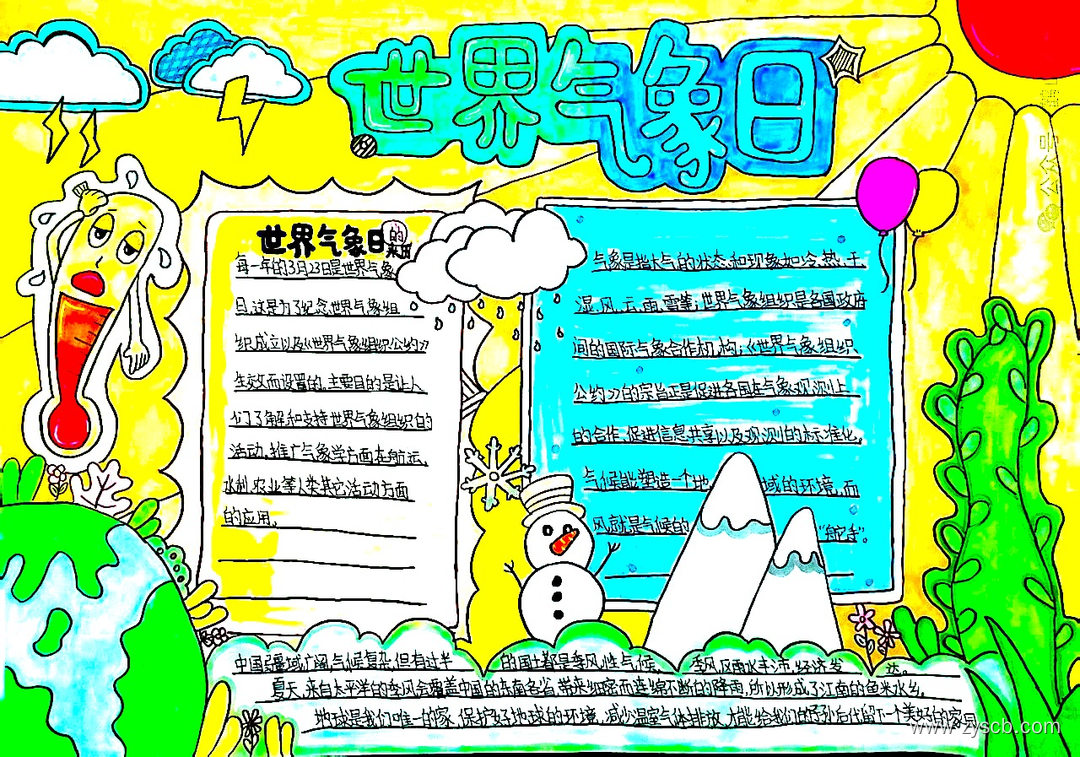 世界气象日
世界气象日的来历
每一年的3月23日是世界气象
日,这是为了纪念世界气象组
织成立以及《世界气象组织公约》
生效而设置的,主要目的是让人
们了解和支持世界气象组织的
活动,推广气象学方面在航运、
水利、农业等人类其它活动方面
的应用。
气象是指大气的状态和现象如冷、热、干、
湿、风、云、雨、雪、雾等;世界气象组织是各国政府
间的国际气象合作机构;《世界气象组织
公约》的宗旨正是促进各国在气象观测上
的合作,促进信息共享以及观测的标准化。
气候能塑造一个地 域的环境,而
风就是气候的 “舵手”。
中国疆域广阔,气候复杂,但有过半 的国土都是季风性气候, 季风区雨水丰沛,经济发 达。
夏天,来自太平洋的季风会覆盖中国的东南各省,带来细密而连绵不断的降雨,所以形成了江南的鱼米水乡。
地球是我们唯一的家,保护好地球的环境,减少温室气体排放,才能给我们的子孙后代留下一个美好的家园
公众号
www.zyscb.com